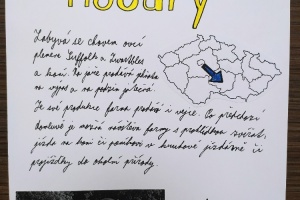 Zabývá se chovem ovcí
plemene Suffolk a Zwartbles
a koní. Na jaře prodává jehňata
na výpas a na podzim plemená.
Ze své produkce farma prodává i vejce. Po předchozí
domluvě je možná návštěva farmy s prohlídkou zvířat,
jízda na koni či poníkovi v kruhové jízdárně či
projížďky do okolní přírody.